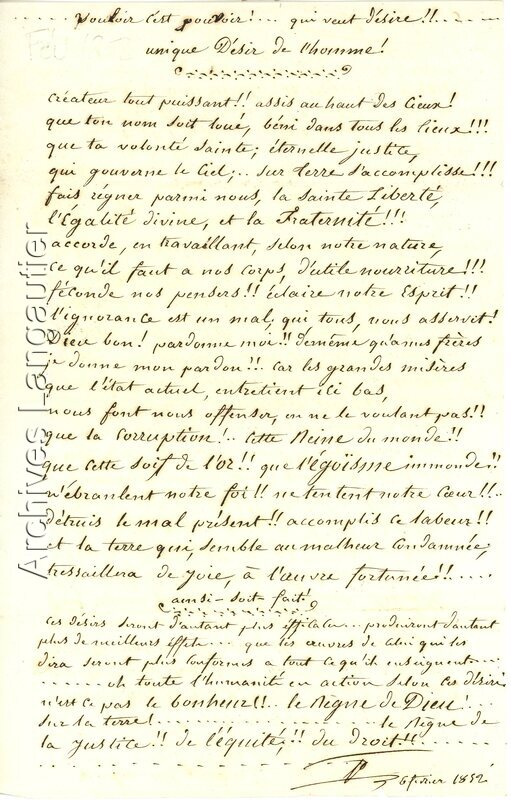 vouloir c'est pouvoir!... qui veut désire!!..
unique Désir de l'homme!
créateur tout puissant!! assis au haut des Cieux!
que ton nom soit loué, béni dans tous les lieux!!!
que ta volonté sainte; éternelle justice,
qui gouverne le Ciel;.. sur terre s'accomplisse!!!
fais régner parmi nous, la sainte Liberté,
l'Égalité divine, et la Fraternité!!!
accorde, en travaillant, selon notre nature,
ce qu'il faut a nos corps, d'utile nourriture!!!
féconde nos pensers!! éclaire notre Esprit!!
l'ignorance est un mal, qui tous, nous asservit!
Dieu bon! pardonne moi!! démême qu'a mes frères
je donne mon pardon!! car les grandes misères
que l'état actuel, entretient ici bas,
nous font nous offenser, en ne le voulant pas!!
que la corruption!.. cette Reine du monde!!
que cette soif de l'or!! que l'égoïsme immonde!!
n'ébranlent notre foi!! ne tentent notre cœur!!..
détruis le mal présent!! accomplis ce labeur!!
et la terre qui, semble au malheur condamnée,
tressaillera de joie, à l'œuvre fortunée!!....
ainsi-soit fait!
ces désirs seront d'autant plus efficaces... produiront d'autant
plus de meilleurs effets... que les œuvres de celui qui les
dira seront plus conformes a tout ce qu'ils enseignent....
oh toute l'humanité en action selon ces désirs
n'est ce pas le bonheur!!.. le Règne de Dieu!
sur la terre!... le Règne de
la justice!! de l'équité;!! du droit!!..
6 février 1852
Archives Langautier